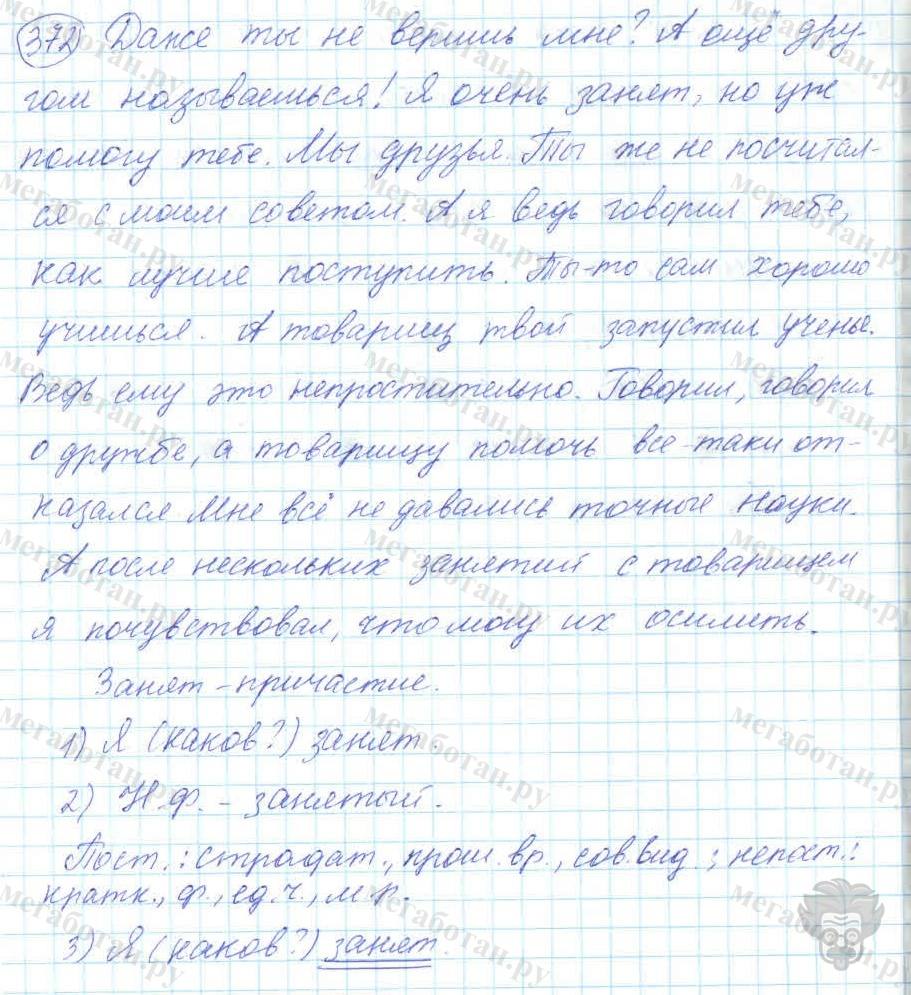 372 Даже ты не веришь мне? А ещё дру-
гом называешься! Я очень занят, но уж
помогу тебе. Мы друзья. Ты же не посчитал-
ся с моим советом. А я ведь говорил тебе,
как лучше поступить. Ты-то сам хорошо
учишься. А товарищ твой запустил ученье.
Ведь ему это непростительно. Говорил, говорил
о дружбе, а товарищу помочь все-таки от-
казался Мне всё не давались точные науки.
А после нескольких занятий с товарищем
я почувствовал, что могу их осилить.
Занят - причастие.
1) Я (каков?) занят.
2) Н.ф. - занятый.
Пост.: страдат., прош. вр., сов. вид.; непост.:
кратк., ф., ед. ч., м. р.
3) Я (каков?) занят.
Мегаботан.ру